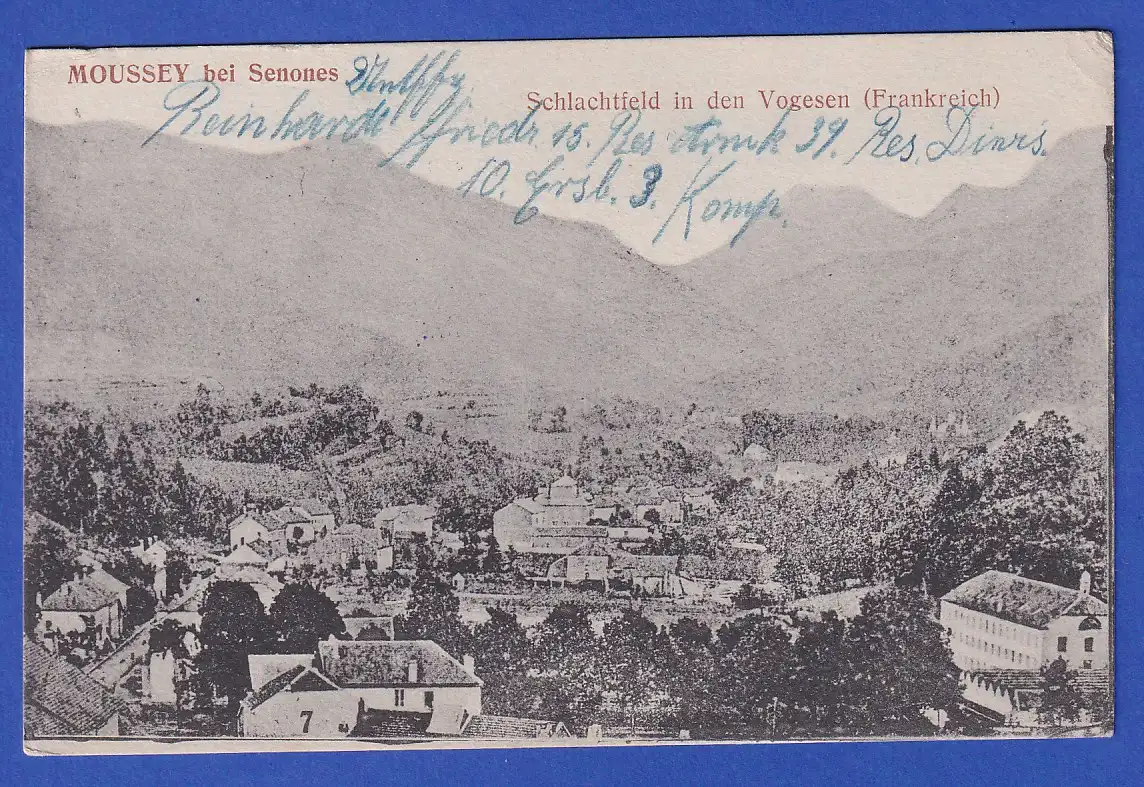 MOUSSEY bei Senones
Schlachtfeld in den Vogesen (Frankreich)
Reinhardt Friedr. 15. Res Armk 39. Res. Divis.
10. Ersb. 3. Komp.
7